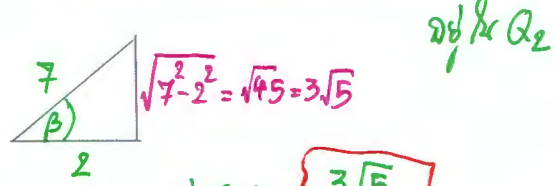 อยู่ใน Q₂
7
√7²-2² = √45 = 3√5
β
2
3√5